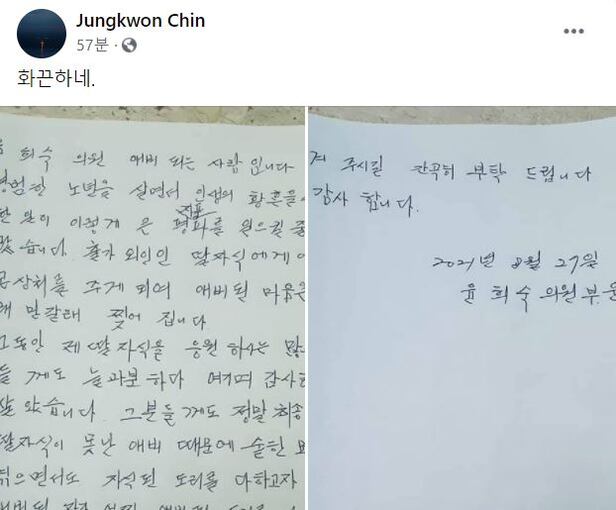 Jungkwon Chin
57분
화끈하네.
희숙 의원 애비 되는 사람 입니다
노년을 살면서 인생의 황혼을
일이 이렇게 큰 평파를 일으킬 줄
했습니다. 출가 외인인 딸자식에게
상처를 주게 되여 애비된 마음은
만갈래 찢어 집니다
그동안 제 딸자식을 응원 하시는
들 께도 늘 과분하다 여기며 감사
살았습니다. 그분들 께도 정말 죄송
딸자식이 못난 애비 때문에 숱한 모
겪으면서도 자식된 도리를 다하고자
겨 주시길 간곡히 부탁 드립니다
감사 합니다.
2021년 8월 27일
윤 희숙 의원 부